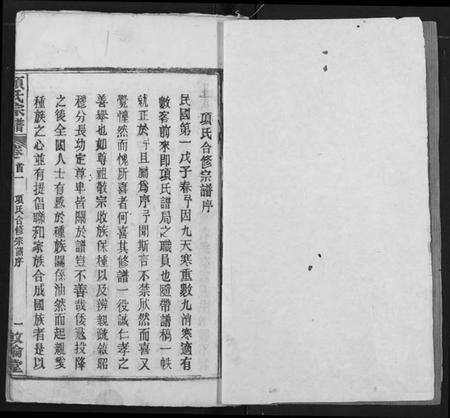 項氏合修宗譜序
民國第一戊子春予因九天寒重數九消寒適有
數客前來即項氏譜局之職員也隨帶譜稿一帙
就正於予且屬為序予聞斯言不禁欣然而喜又
覺悚然而愧所喜者何喜其修譜一役誠仁孝之
善舉也如尊祖敬宗收族保種以及辨親疎敘昭
穆分長幼定尊卑皆關於譜豈不善哉倭寇投降
之後全國人士有感於種族關係油然而起親愛
種族之心並有提倡聯和家族合成國族者是以
項氏宗譜
卷首一
項氏合修宗譜序
一
敦倫堂